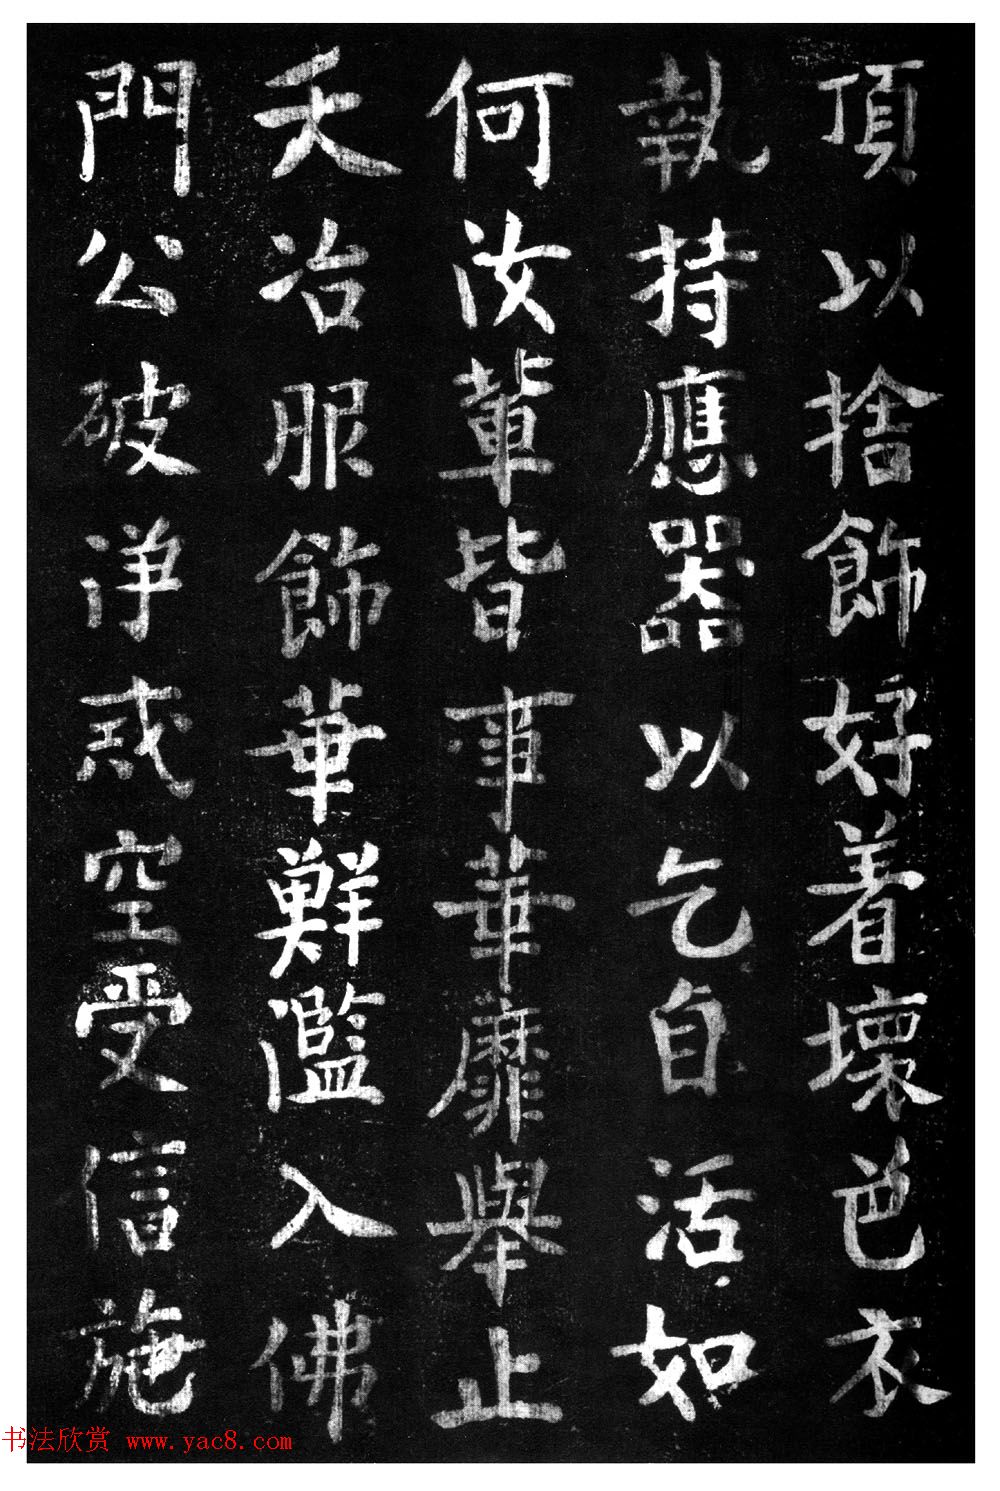 頂以捨飾好着壞色衣
執持應器以乞自活如
何汝輩皆事華靡舉止
夭冶服飾華鮮濫入佛
門公破淨戒空受信施
书法欣赏 www.yac8.com